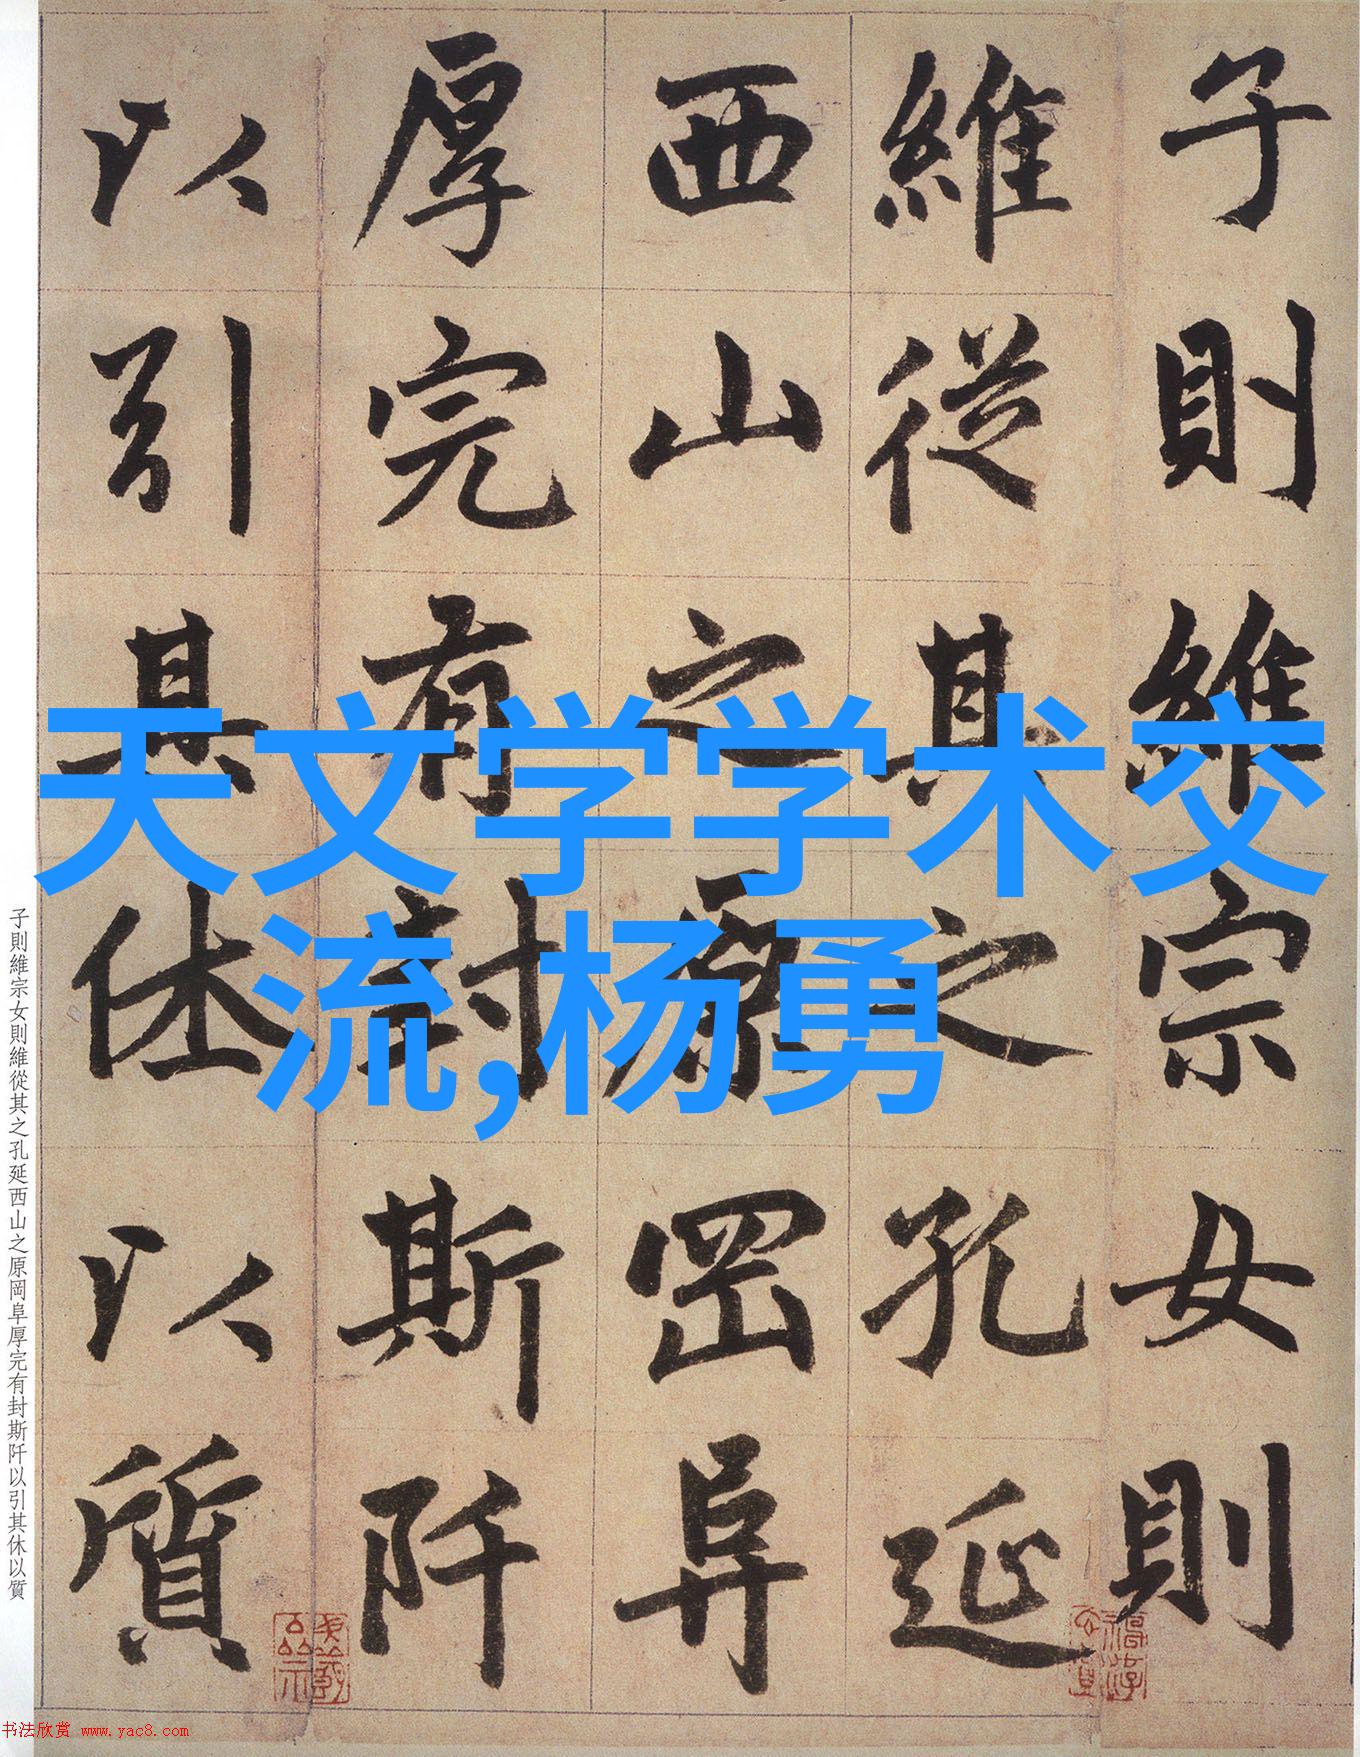 子則維宗女則
維從其之孔延
西山之原岡阜
厚完有封斯阡
以引其休以質
天文学学术交
流,杨勇
子則維宗女則維從其之孔延西山之原岡阜厚完有封斯阡以引其休以質
书法欣赏 www.yac8.com